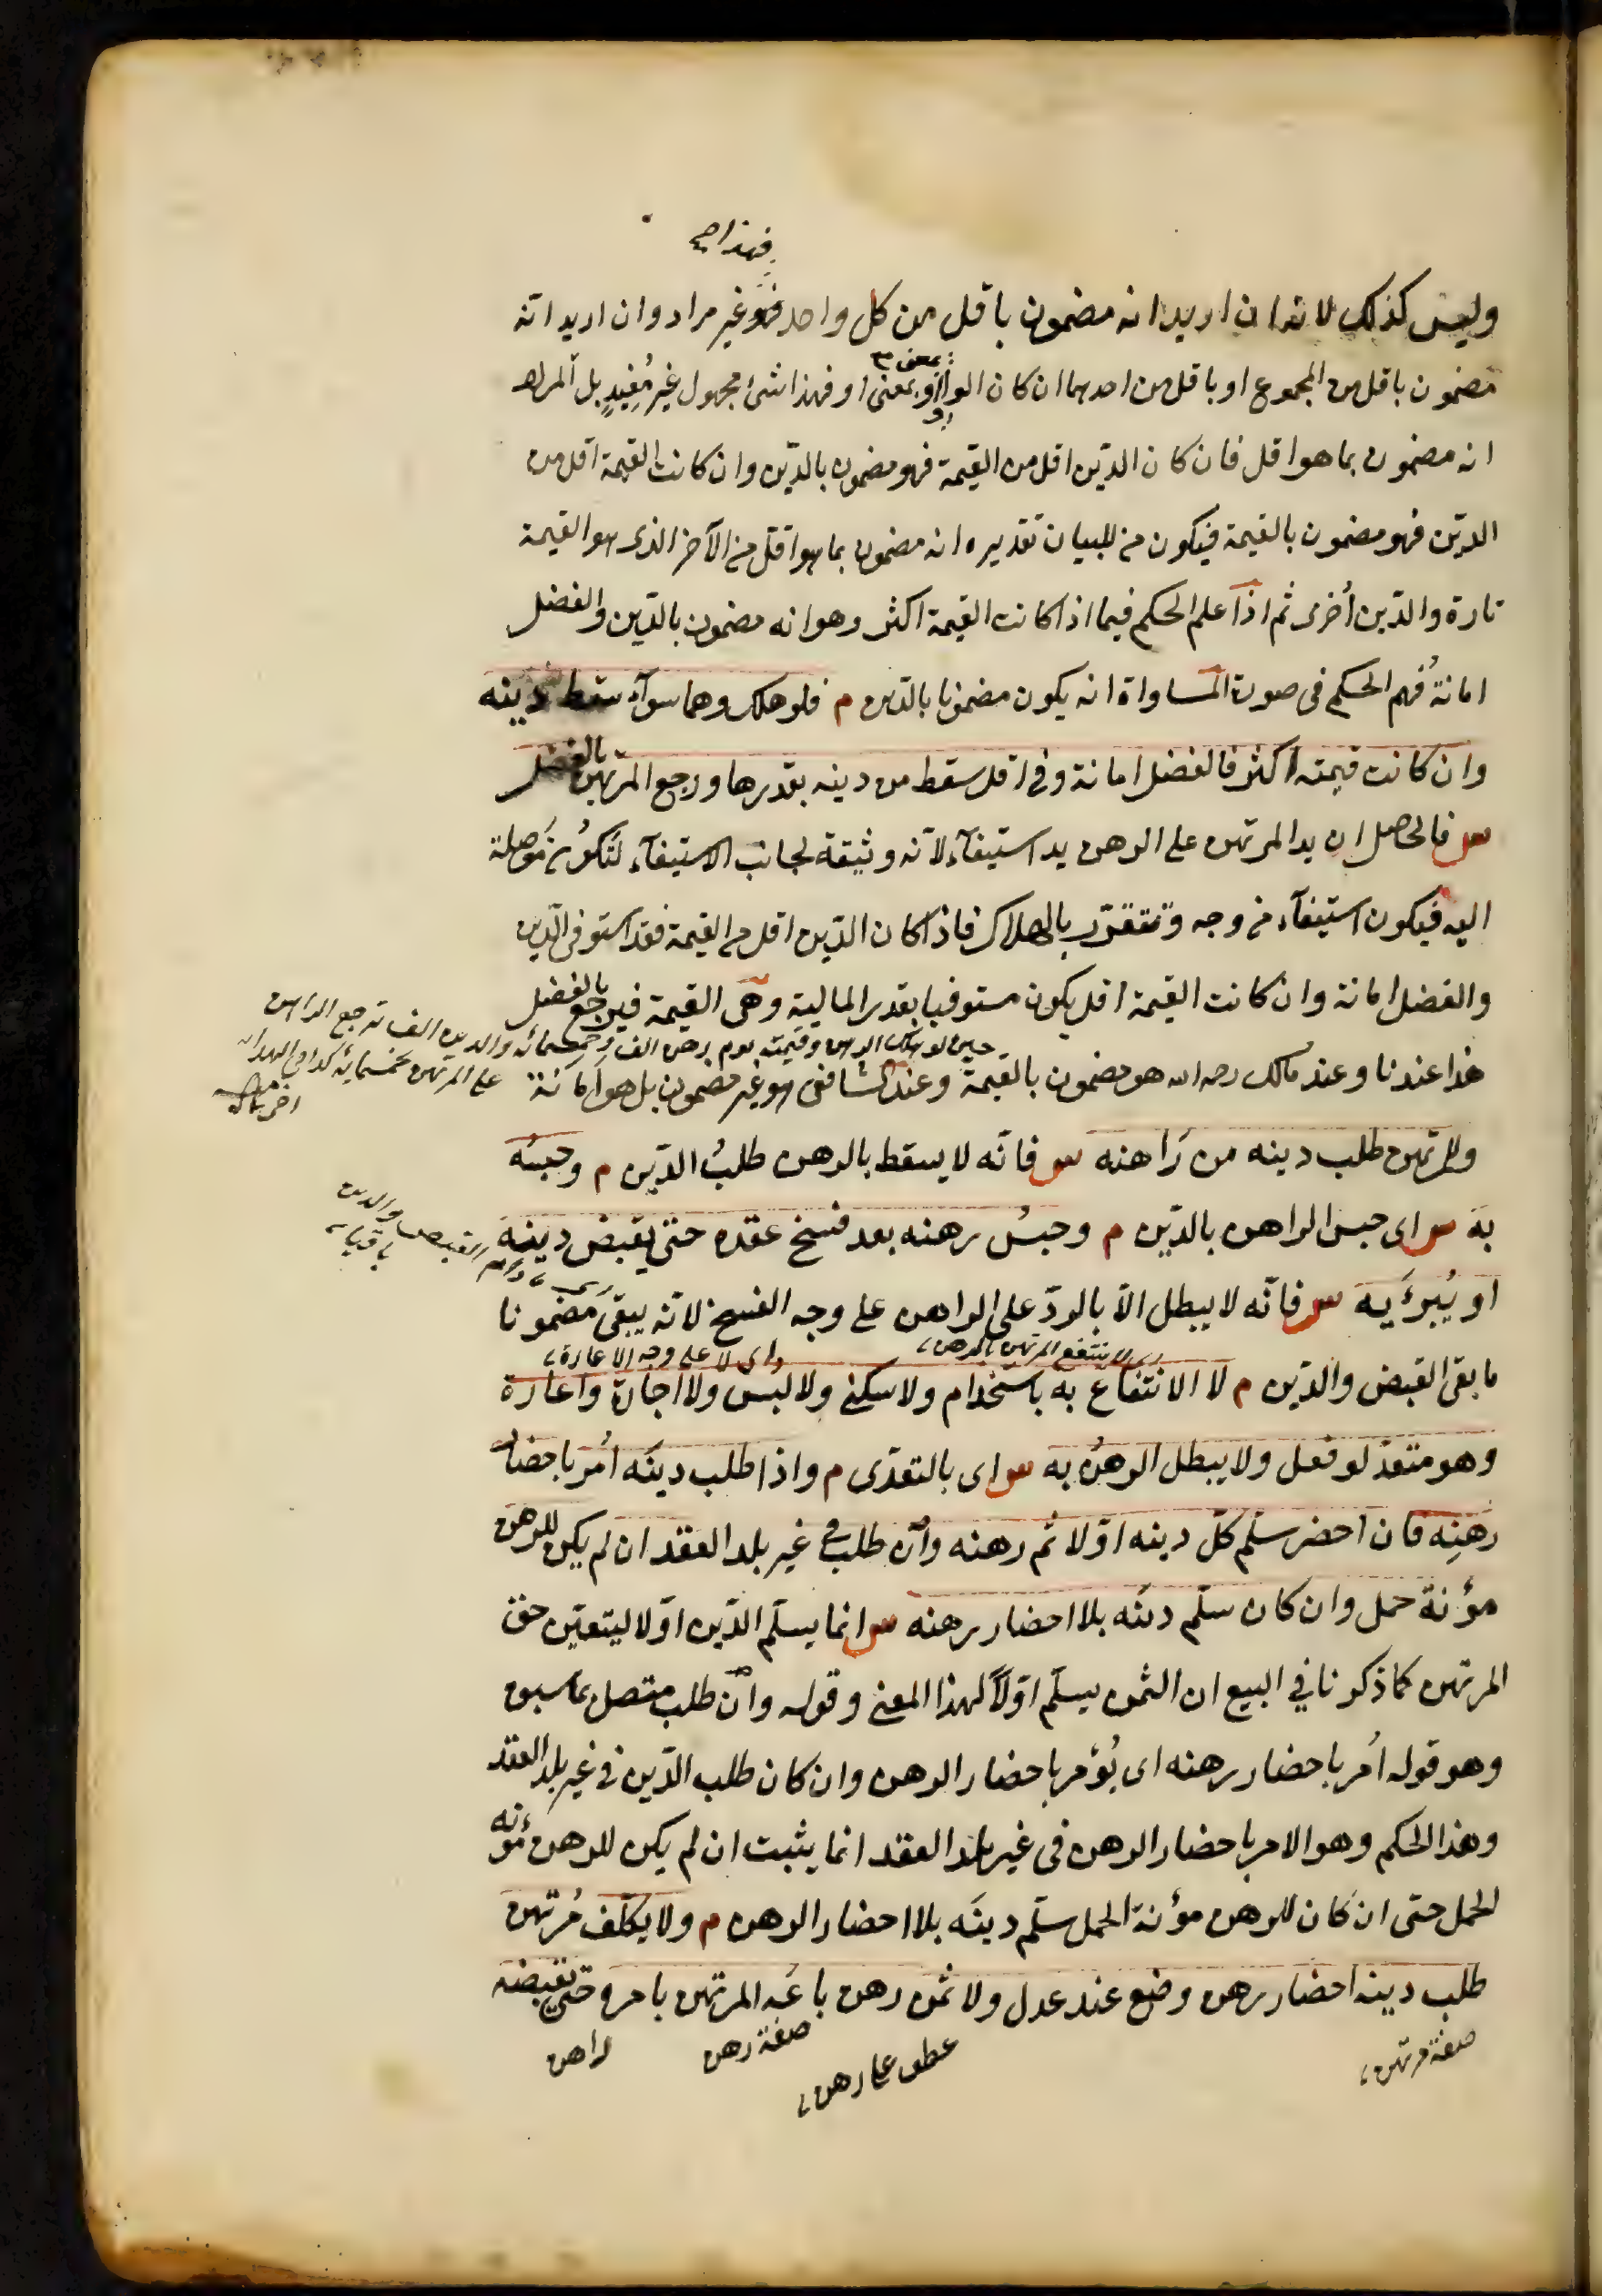 فهذا
وليس كذلك لانه ان اريد انه مضمون باقل من كل واحد فهو غير مراد وان اريد انه
مضمون باقل من المجموع او باقل من احدهما ان كان الواو بمعنى او فهذا شئ مجهول غير مُفيدٍ بل المراد
انه مضمون بما هو اقل فان كان الدّين اقل من القيمة فهو مضمون بالدّين وان كانت القيمة اقل من
الدّين فهو مضمون بالقيمة فيكون من للبيان تقديره انه مضمون بما هو اقل من الآخر الذى هو القيمة
تارة والدّين أُخرى ثم اذا علم الحكم فيما اذا كانت القيمة اكثر وهو انه مضمون بالدّين والفضل
امانةٌ فُهم الحكم فى صورة المساواة انه يكون مضمونا بالدّين م فلو هلك وهما سوآء سقط دينه
وان كانت قيمته اكثر فالفضل امانة وفى اقل سقط من دينه بقدرها ورجع المرتهن بالفضل
س فالحاصل ان يد المرتهن على الرهن يد استيفآء لانّه وثيقة لجانب الاستيفآء لتكون مُوصلة
اليه فيكون استيفآء من وجه وتتقرّر بالهلاك فاذا كان الدّين اقل من القيمة فقد استوفى الدّين
والفضل امانة وان كانت القيمة اقل يكون مستوفيا بقدر المالية وهى القيمة فيرجع بالفضل
هذا عندنا وعند مالك رحمه الله هو مضمون بالقيمة وعند الشافعى هو غير مضمون بل هو امانة
وللمرتهن طلب دينه من راهنه س فانّه لا يسقط بالرهن طلبُ الدّين م وحبسُه
به س اى حبس الراهن بالدّين م وحبسُ رهنه بعد فسخ عقده حتى يقبض دينه
او يُبرئَه س فانّه لا يبطل الاّ بالردّ على الراهن على وجه الفسخ لانّه يبقى مضمونا
اى لا ينتفع المرتهن بالرهن
اى لا على وجه الاعارة
ما بقى القبض والدّين م لا الانتفاع به باستخدام ولا سكنى ولا لبس ولا اجارة واعارة
وهو متعدّ لو فعل ولا يبطل الرهنُ به س اى بالتعدّى م واذا طلب دينَه أُمر باحضار
رهنِه فان احضر سلّم كلّ دينه اوّلا ثم رهنه وان طلب فى غير بلد العقد ان لم يكن للرهن
مؤنة حمل وان كان سلّم دينَه بلا احضار رهنه س انما يسلّم الدّين اوّلا ليتعيّن حق
المرتهن كما ذكرنا فى البيع ان الثمن يسلّم اوّلاً لهذا المعنى وقوله وان طلب متصل بما سبق
وهو قوله أُمر باحضار رهنه اى يُؤمر باحضار الرهن وان كان طلب الدّين فى غير بلد العقد
وهذا الحكم وهو الامر باحضار الرهن فى غير بلد العقد انما يثبت ان لم يكن للرهن مؤنه
الحمل حتى ان كان للرهن مؤنة الحمل سلّم دينَه بلا احضار الرهن م ولا يكلّف مُرتهن
طلب دينه احضار رهن وضع عند عدل ولا ثمن رهن باعَه المرتهن بامره حتى يقبضه
صفة مرتهن
عطف على رهن
صفة رهن
راهن